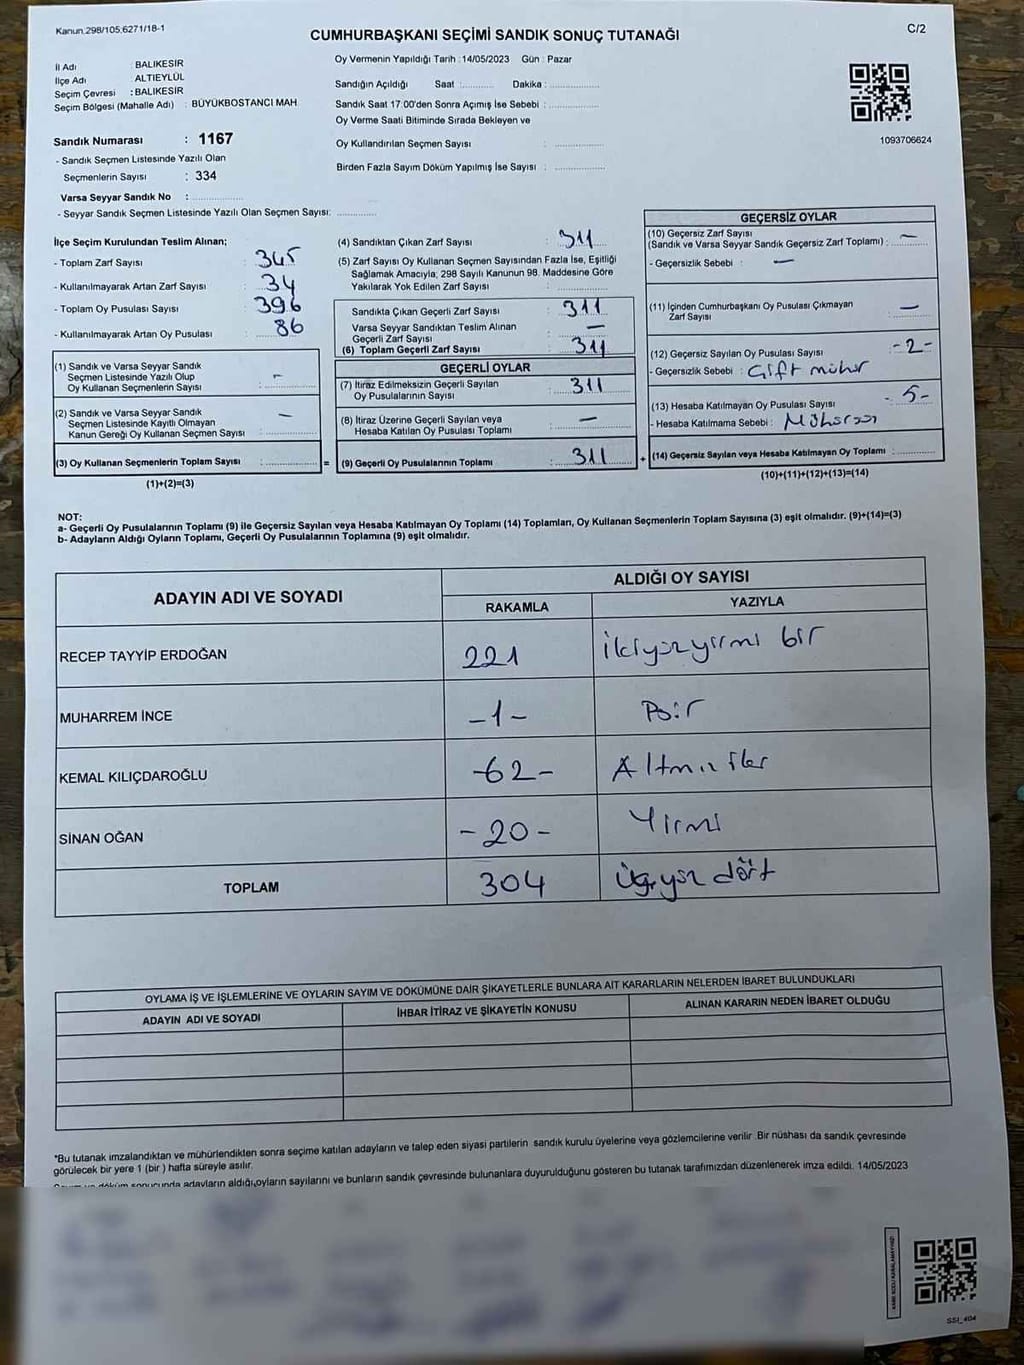 Kanun.298/105,6271/18-1
C/2
CUMHURBAŞKANI SEÇİMİ SANDIK SONUÇ TUTANAĞI
İl Adı : BALIKESİR
İlçe Adı ALTIEYLÜL
Seçim Çevresi : BALIKESİR
Seçim Bölgesi (Mahalle Adı) : BÜYÜKBOSTANCI MAH.
Sandık Numarası : 1167
- Sandık Seçmen Listesinde Yazılı Olan
Seçmenlerin Sayısı : 334
Varsa Seyyar Sandık No :
- Seyyar Sandık Seçmen Listesinde Yazılı Olan Seçmen Sayısı:
Oy Vermenin Yapıldığı Tarih : 14/05/2023 Gün : Pazar
Sandığın Açıldığı Saat : Dakika :
Sandık Saat 17:00'den Sonra Açımış İse Sebebi :
Oy Verme Saati Bitiminde Sırada Bekleyen ve
Oy Kullandırılan Seçmen Sayısı :
Birden Fazla Sayım Döküm Yapılmış İse Sayısı :
1093706624
İlçe Seçim Kurulundan Teslim Alınan;
- Toplam Zarf Sayısı : 345
- Kullanılmayarak Artan Zarf Sayısı : 34
- Toplam Oy Pusulası Sayısı : 396
- Kullanılmayarak Artan Oy Pusulası : 86
(1) Sandık ve Varsa Seyyar Sandık
Seçmen Listesinde Yazılı Olup
Oy Kullanan Seçmenlerin Sayısı : -
(2) Sandık ve Varsa Seyyar Sandık
Seçmen Listesinde Kayıtlı Olmayan
Kanun Gereği Oy Kullanan Seçmen Sayısı : -
(3) Oy Kullanan Seçmenlerin Toplam Sayısı : =
(1)+(2)=(3)
(4) Sandıktan Çıkan Zarf Sayısı : 311
(5) Zarf Sayısı Oy Kullanan Seçmen Sayısından Fazla İse, Eşitliği
Sağlamak Amacıyla; 298 Sayılı Kanunun 98. Maddesine Göre
Yakılarak Yok Edilen Zarf Sayısı :
Sandıkta Çıkan Geçerli Zarf Sayısı : 311
Varsa Seyyar Sandıktan Teslim Alınan
Geçerli Zarf Sayısı : -
(6) Toplam Geçerli Zarf Sayısı : 311
GEÇERLİ OYLAR
(7) İtiraz Edilmeksizin Geçerli Sayılan
Oy Pusulalarının Sayısı : 311
(8) İtiraz Üzerine Geçerli Sayılan veya
Hesaba Katılan Oy Pusulası Toplamı : -
(9) Geçerli Oy Pusulalarının Toplamı : 311 +
GEÇERSİZ OYLAR
(10) Geçersiz Zarf Sayısı
(Sandık ve Varsa Seyyar Sandık Geçersiz Zarf Toplamı) : -
- Geçersizlik Sebebi : -
(11) İçinden Cumhurbaşkanı Oy Pusulası Çıkmayan
Zarf Sayısı : -
(12) Geçersiz Sayılan Oy Pusulası Sayısı : -2-
- Geçersizlik Sebebi : Çift mühür
(13) Hesaba Katılmayan Oy Pusulası Sayısı : -5-
- Hesaba Katılmama Sebebi : Mühürsüz
(14) Geçersiz Sayılan veya Hesaba Katılmayan Oy Toplamı :
(10)+(11)+(12)+(13)=(14)
NOT:
a- Geçerli Oy Pusulalarının Toplamı (9) ile Geçersiz Sayılan veya Hesaba Katılmayan Oy Toplamı (14) Toplamları, Oy Kullanan Seçmenlerin Toplam Sayısına (3) eşit olmalıdır. (9)+(14)=(3)
b- Adayların Aldığı Oyların Toplamı, Geçerli Oy Pusulalarının Toplamına (9) eşit olmalıdır.
ADAYIN ADI VE SOYADI
ALDIĞI OY SAYISI
RAKAMLA YAZIYLA
RECEP TAYYİP ERDOĞAN 221 İkiyüzyirmi bir
MUHARREM İNCE -1- Bir
KEMAL KILIÇDAROĞLU -62- Altmış iki
SİNAN OĞAN -20- Yirmi
TOPLAM 304 Üçyüz dört
OYLAMA İŞ VE İŞLEMLERİNE VE OYLARIN SAYIM VE DÖKÜMÜNE DAİR ŞİKAYETLERLE BUNLARA AİT KARARLARIN NELERDEN İBARET BULUNDUKLARI
ADAYIN ADI VE SOYADI İHBAR İTİRAZ VE ŞİKAYETİN KONUSU ALINAN KARARIN NEDEN İBARET OLDUĞU
*Bu tutanak imzalandıktan ve mühürlendikten sonra seçime katılan adayların ve talep eden siyasi partilerin sandık kurulu üyelerine veya gözlemcilerine verilir. Bir nüshası da sandık çevresinde
görülecek bir yere 1 (bir ) hafta süreyle asılır.
Sayım ve döküm sonucunda adayların aldığı,oyların sayılarını ve bunların sandık çevresinde bulunanlara duyurulduğunu gösteren bu tutanak tarafımızdan düzenlenerek imza edildi. 14/05/2023
SSI_404